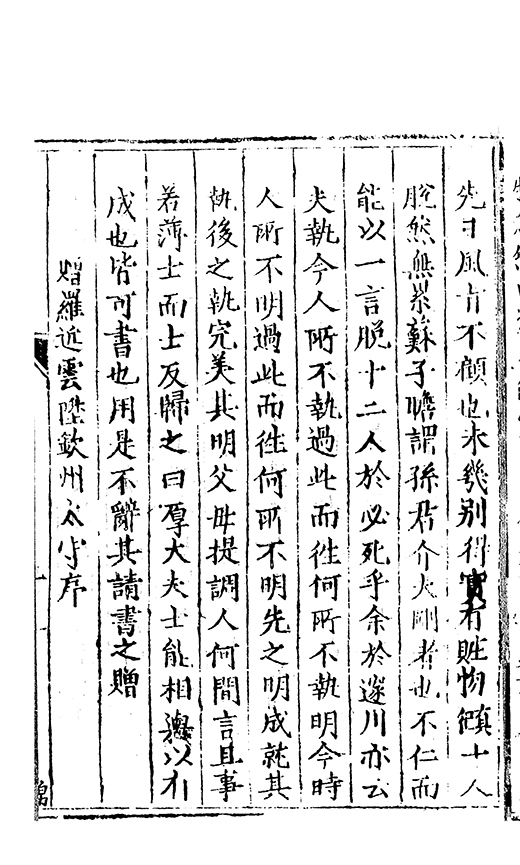 先日風肯不顧也未幾別得實有賍物償十人
脫然無累蘇子瞻謂孫君介夫剛者也不仁而
能以一言脫十二人於必死乎余於遂川亦云
夫執今人所不執過此而徃何所不執明今時
人所不明過此而徃何所不明先之明成就其
執後之執完美其明父母提調人何間言且事
若薄士而士反歸之曰厚大夫士能相邊以有
成也皆可書也用是不辭其請書之贈
贈羅近雲陞欽州太守序